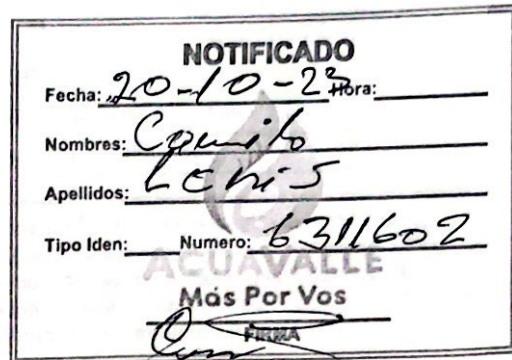 NOTIFICADO
Fecha: 20-10-23 Hora:
Nombres: Camilo
Apellidos: Lenis
Tipo Iden: Numero: 6311602
ACUAVALLE
Más Por Vos
FIRMA